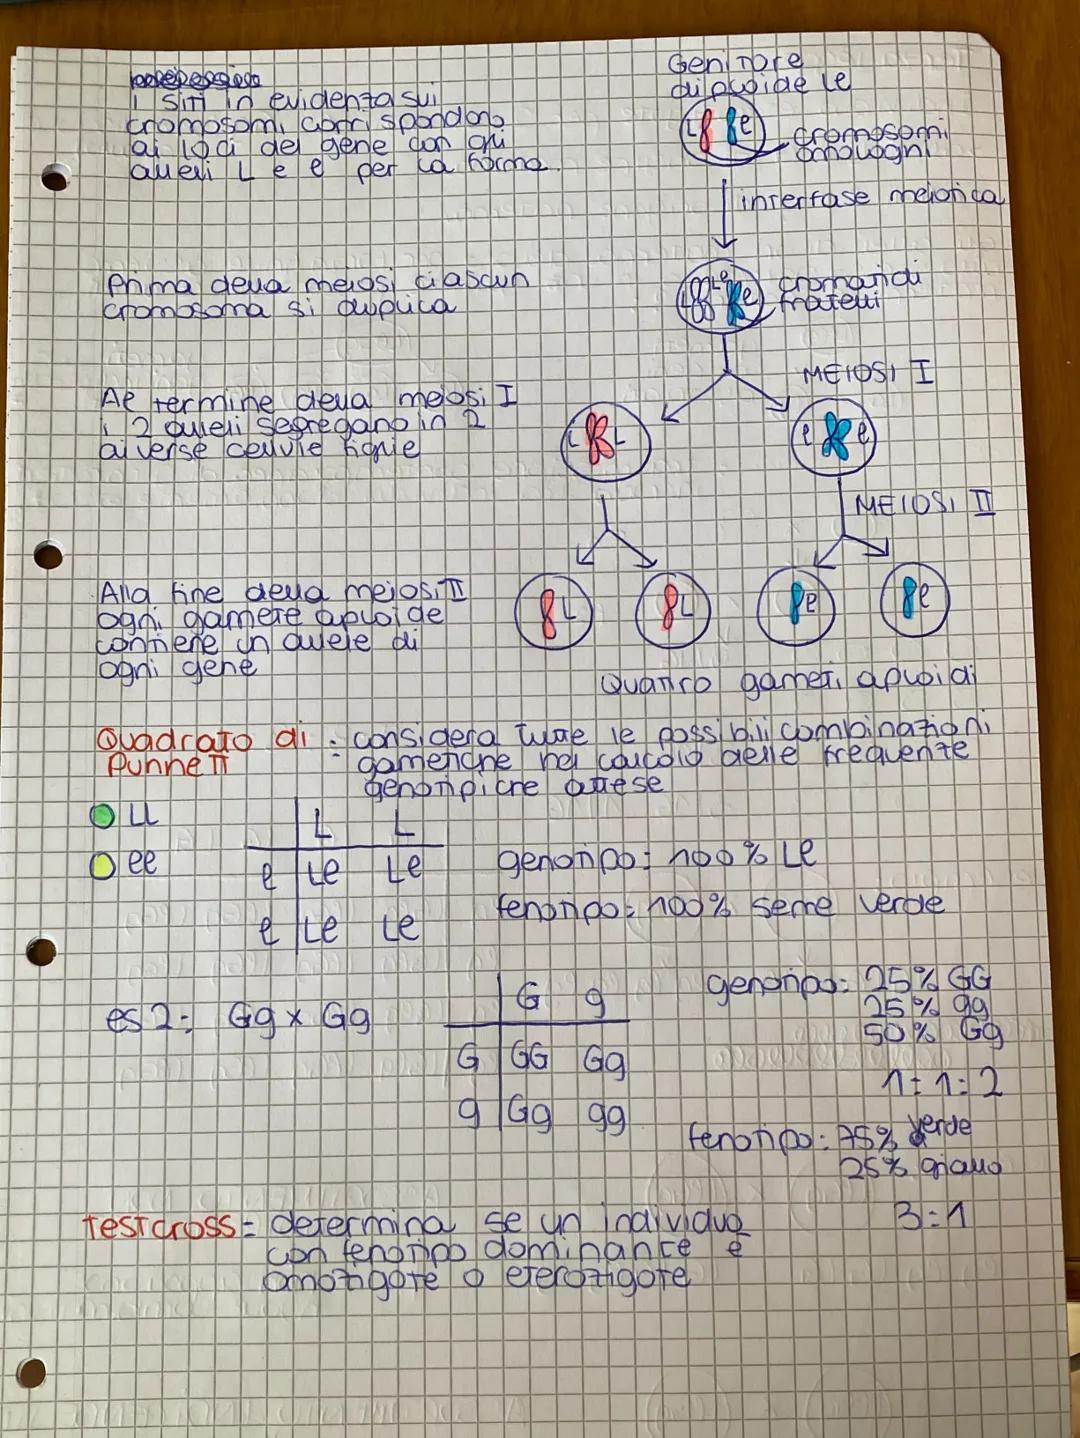 i siti in evidenza sui
cromosomi corrispondono
ai loci del gene con gli
alleli L e e per la forma.
Genitore
diploide Le
L e
cromosomi
omologhi
interfase meiotica
Prima della meiosi ciascun
cromosoma si duplica
L L e e
cromatidi
fratelli
MEIOSI I
Al termine della meiosi I
i 2 alleli segregano in 2
diverse cellule figlie
L L
e e
MEIOSI II
Alla fine della meiosi II
ogni gamete aploide
contiene un allele di
ogni gene
L
L
e
e
Quattro gameti aploidi
Quadrato di : considera tutte le possibili combinazioni
Punnett gametiche nel calcolo delle frequenze
genotipiche attese
LL
ee
L L
e Le Le
e Le Le
genotipo: 100% Le
fenotipo: 100% seme verde
es 2: Gg x Gg
G g
G GG Gg
g Gg gg
genotipo: 25% GG
25% gg
50% Gg
1:1:2
fenotipo: 75% verde
25% giallo
3:1
testcross= determina se un individuo
con fenotipo dominante è
omozigote o eterozigote